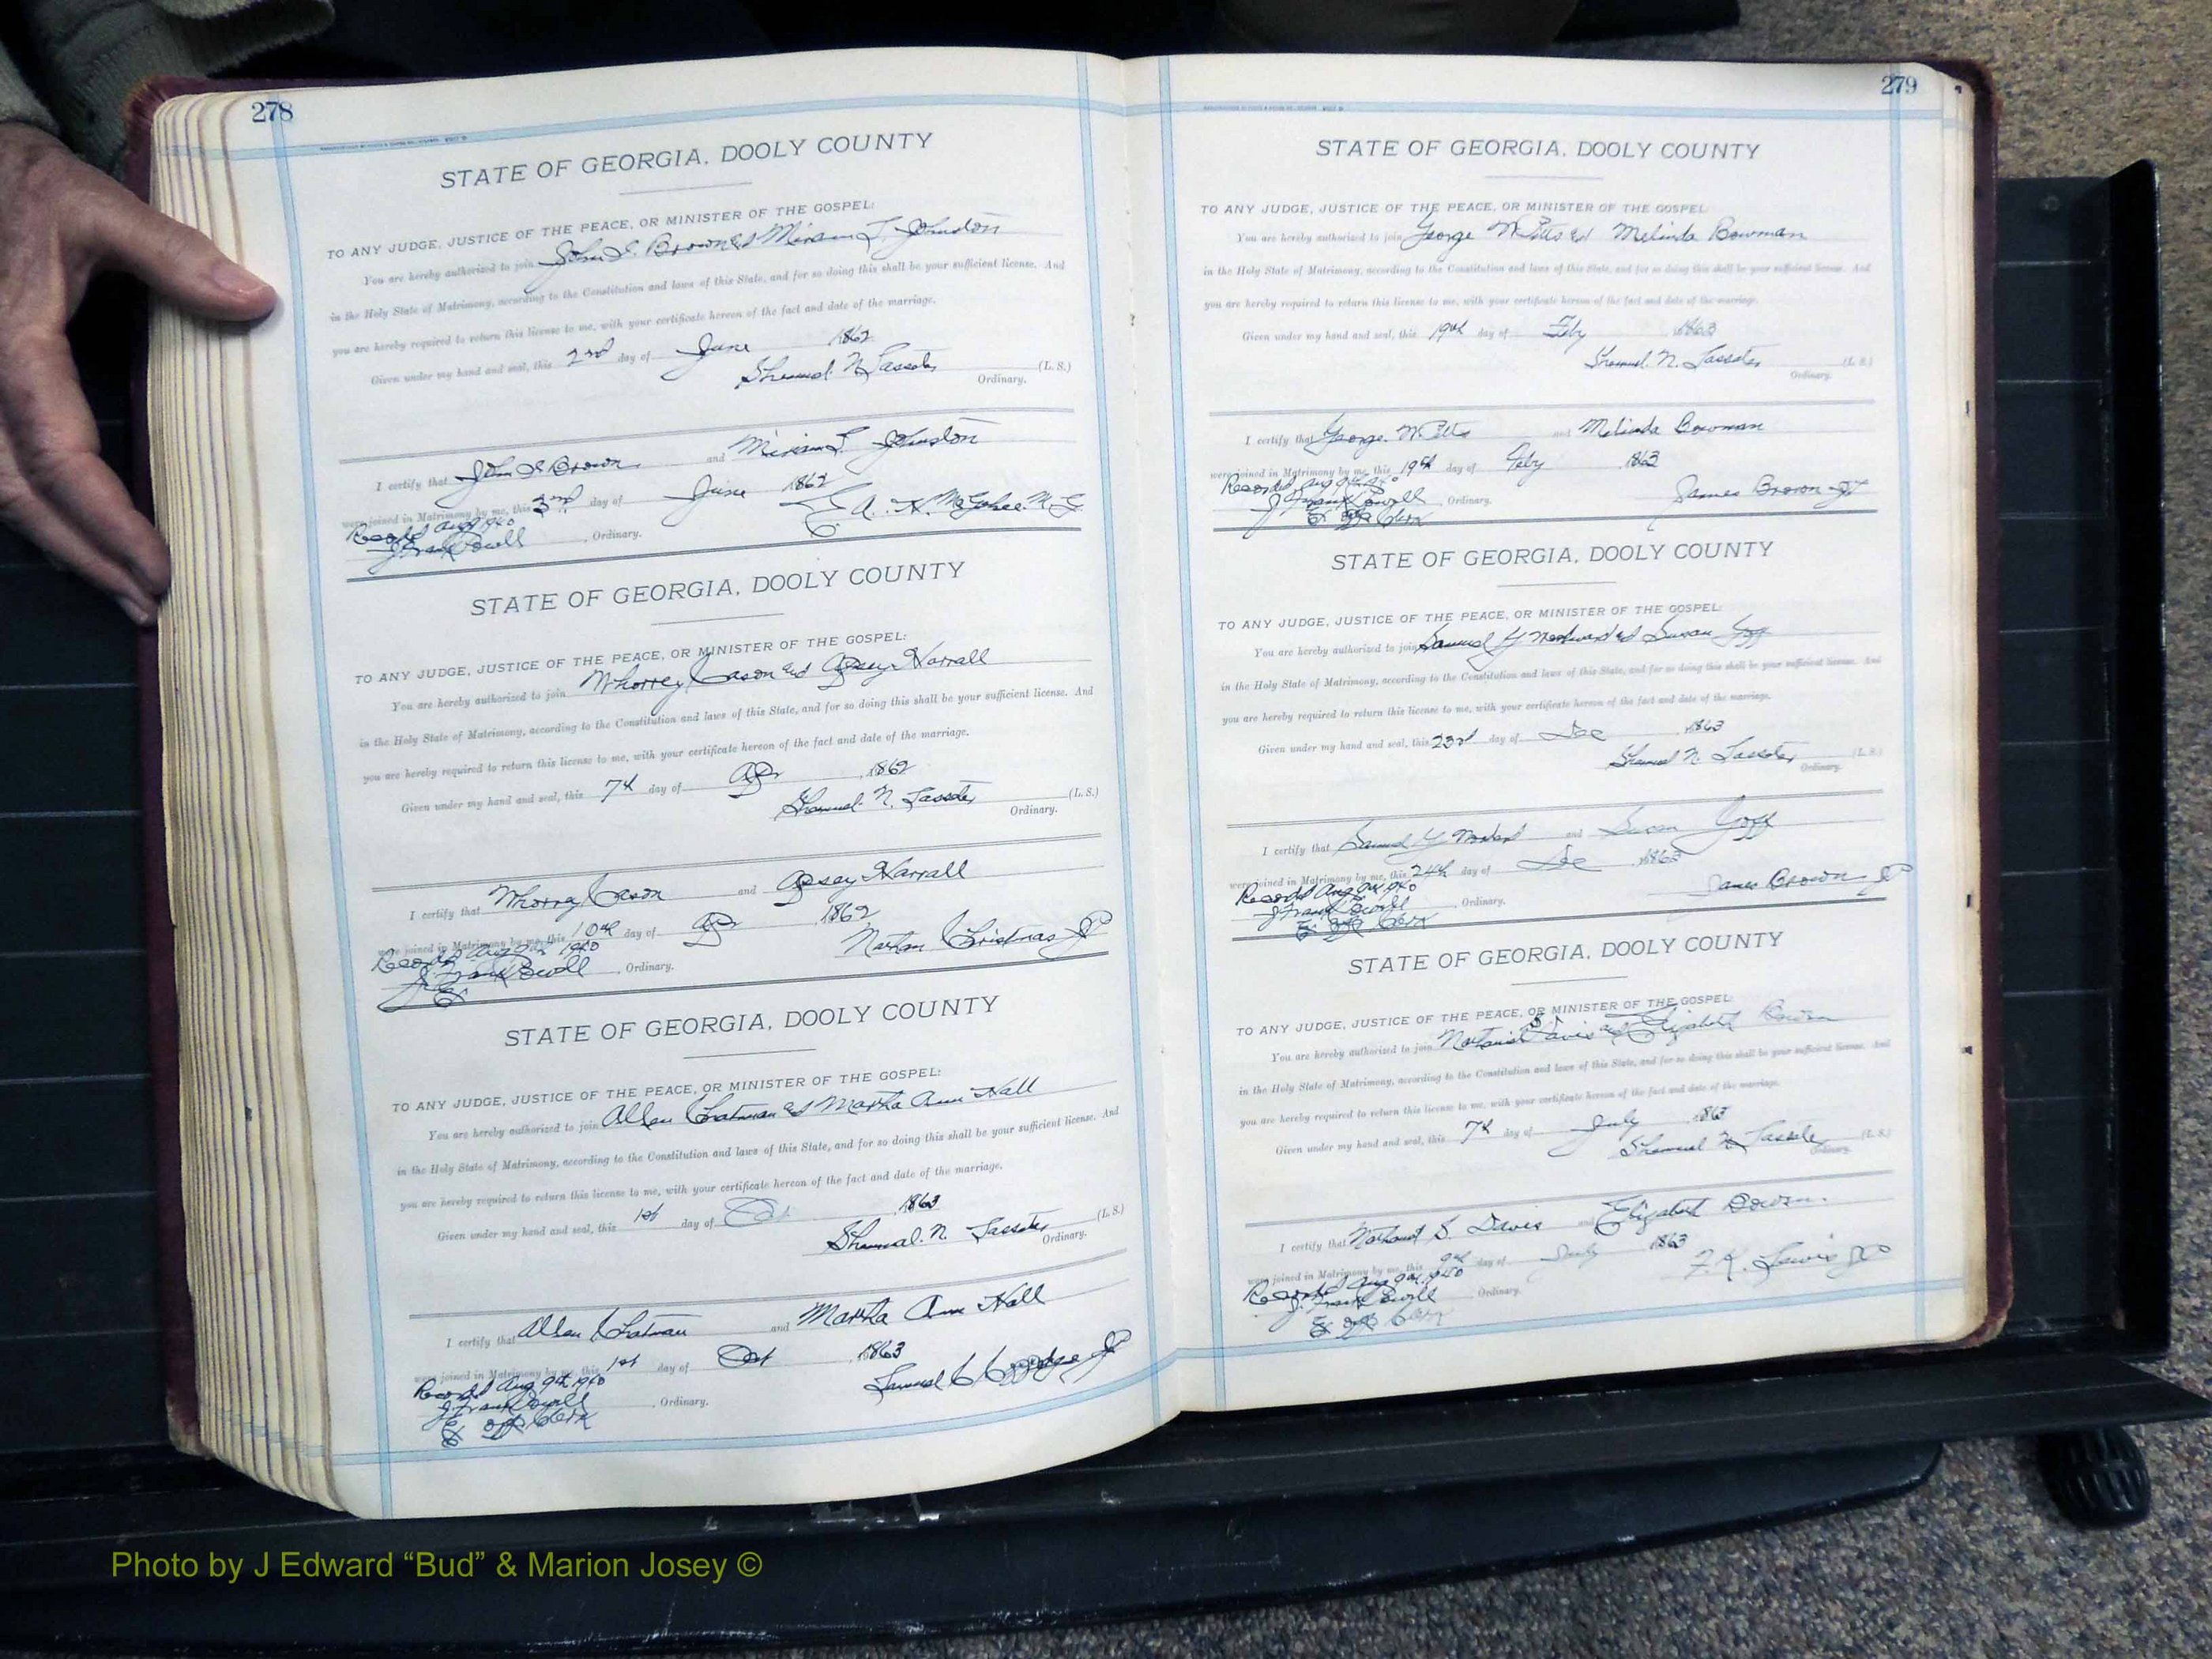 278
STATE OF GEORGIA, DOOLY COUNTY
TO ANY JUDGE, JUSTICE OF THE PEACE, OR MINISTER OF THE GOSPEL:
You are hereby authorized to join John S. Brown and Miriam L. Johnston
in the Holy State of Matrimony, according to the Constitution and laws of this State, and for so doing this shall be your sufficient license. And
you are hereby required to return this license to me, with your certificate hereon of the fact and date of the marriage.
Given under my hand and seal, this 2nd day of June 1862
N. Lasseter (L. S.)
Ordinary.
I certify that John S Brown and Miriam L. Johnston
were joined in Matrimony by me, this 3rd day of June 1862
Recorded Aug 9 1940 A. H. McGehee M. G.
J Frank Powell , Ordinary.
STATE OF GEORGIA, DOOLY COUNTY
TO ANY JUDGE, JUSTICE OF THE PEACE, OR MINISTER OF THE GOSPEL:
You are hereby authorized to join Whorrey Cason and Apsey Harrall
in the Holy State of Matrimony, according to the Constitution and laws of this State, and for so doing this shall be your sufficient license. And
you are hereby required to return this license to me, with your certificate hereon of the fact and date of the marriage.
Given under my hand and seal, this 7th day of Apr , 1862
N. Lasseter (L. S.)
Ordinary.
I certify that Whorrey Cason and Apsey Harrall
were joined in Matrimony by me, this 10th day of Apr , 1862
Recorded Aug 9th 1940 Nathan Christmas JP
J. Frank Powell , Ordinary.
Ex
STATE OF GEORGIA, DOOLY COUNTY
TO ANY JUDGE, JUSTICE OF THE PEACE, OR MINISTER OF THE GOSPEL:
You are hereby authorized to join Allen Chatman and Martha Ann Hall
in the Holy State of Matrimony, according to the Constitution and laws of this State, and for so doing this shall be your sufficient license. And
you are hereby required to return this license to me, with your certificate hereon of the fact and date of the marriage.
Given under my hand and seal, this 1st day of Oct , 1863
N. Lasseter (L. S.)
Ordinary.
I certify that Allen Chatman and Martha Ann Hall
were joined in Matrimony by me, this 1st day of Oct , 1863
Recorded Aug 9th 1940 Samuel JP
J. Frank Powell , Ordinary.
Ex off Clerk
279
STATE OF GEORGIA, DOOLY COUNTY
TO ANY JUDGE, JUSTICE OF THE PEACE, OR MINISTER OF THE GOSPEL:
You are hereby authorized to join George W Pitts and Melinda Bowman
in the Holy State of Matrimony, according to the Constitution and laws of this State, and for so doing this shall be your sufficient license. And
you are hereby required to return this license to me, with your certificate hereon of the fact and date of the marriage.
Given under my hand and seal, this 19th day of Feby , 1863
N. Lasseter (L. S.)
Ordinary.
I certify that George W Pitts and Melinda Bowman
were joined in Matrimony by me, this 19th day of Feby , 1863
Recorded Aug 9th 1940 James Brown JP
J Frank Powell , Ordinary.
Ex off Clerk
STATE OF GEORGIA, DOOLY COUNTY
TO ANY JUDGE, JUSTICE OF THE PEACE, OR MINISTER OF THE GOSPEL:
You are hereby authorized to join Samuel Y and Susan Goff
in the Holy State of Matrimony, according to the Constitution and laws of this State, and for so doing this shall be your sufficient license. And
you are hereby required to return this license to me, with your certificate hereon of the fact and date of the marriage.
Given under my hand and seal, this 23rd day of Dec , 1863
N. Lasseter (L. S.)
Ordinary.
I certify that Samuel Y and Susan Goff
were joined in Matrimony by me, this 24th day of Dec , 1863
Recorded Aug 9th 1940 James Brown JP
J Frank Powell , Ordinary.
Ex off Clerk
STATE OF GEORGIA, DOOLY COUNTY
TO ANY JUDGE, JUSTICE OF THE PEACE, OR MINISTER OF THE GOSPEL:
You are hereby authorized to join S. Davis and Elizabeth Bowen
in the Holy State of Matrimony, according to the Constitution and laws of this State, and for so doing this shall be your sufficient license. And
you are hereby required to return this license to me, with your certificate hereon of the fact and date of the marriage.
Given under my hand and seal, this 7th day of July , 1863
N. Lasseter (L. S.)
Ordinary.
I certify that S. Davis and Elizabeth Bowen
were joined in Matrimony by me, this 9th day of July 1863
Recorded Aug 9th 1940 F. K. Lewis JP
J. Frank Powell , Ordinary.
Ex off Clerk
Photo by J Edward “Bud” & Marion Josey ©